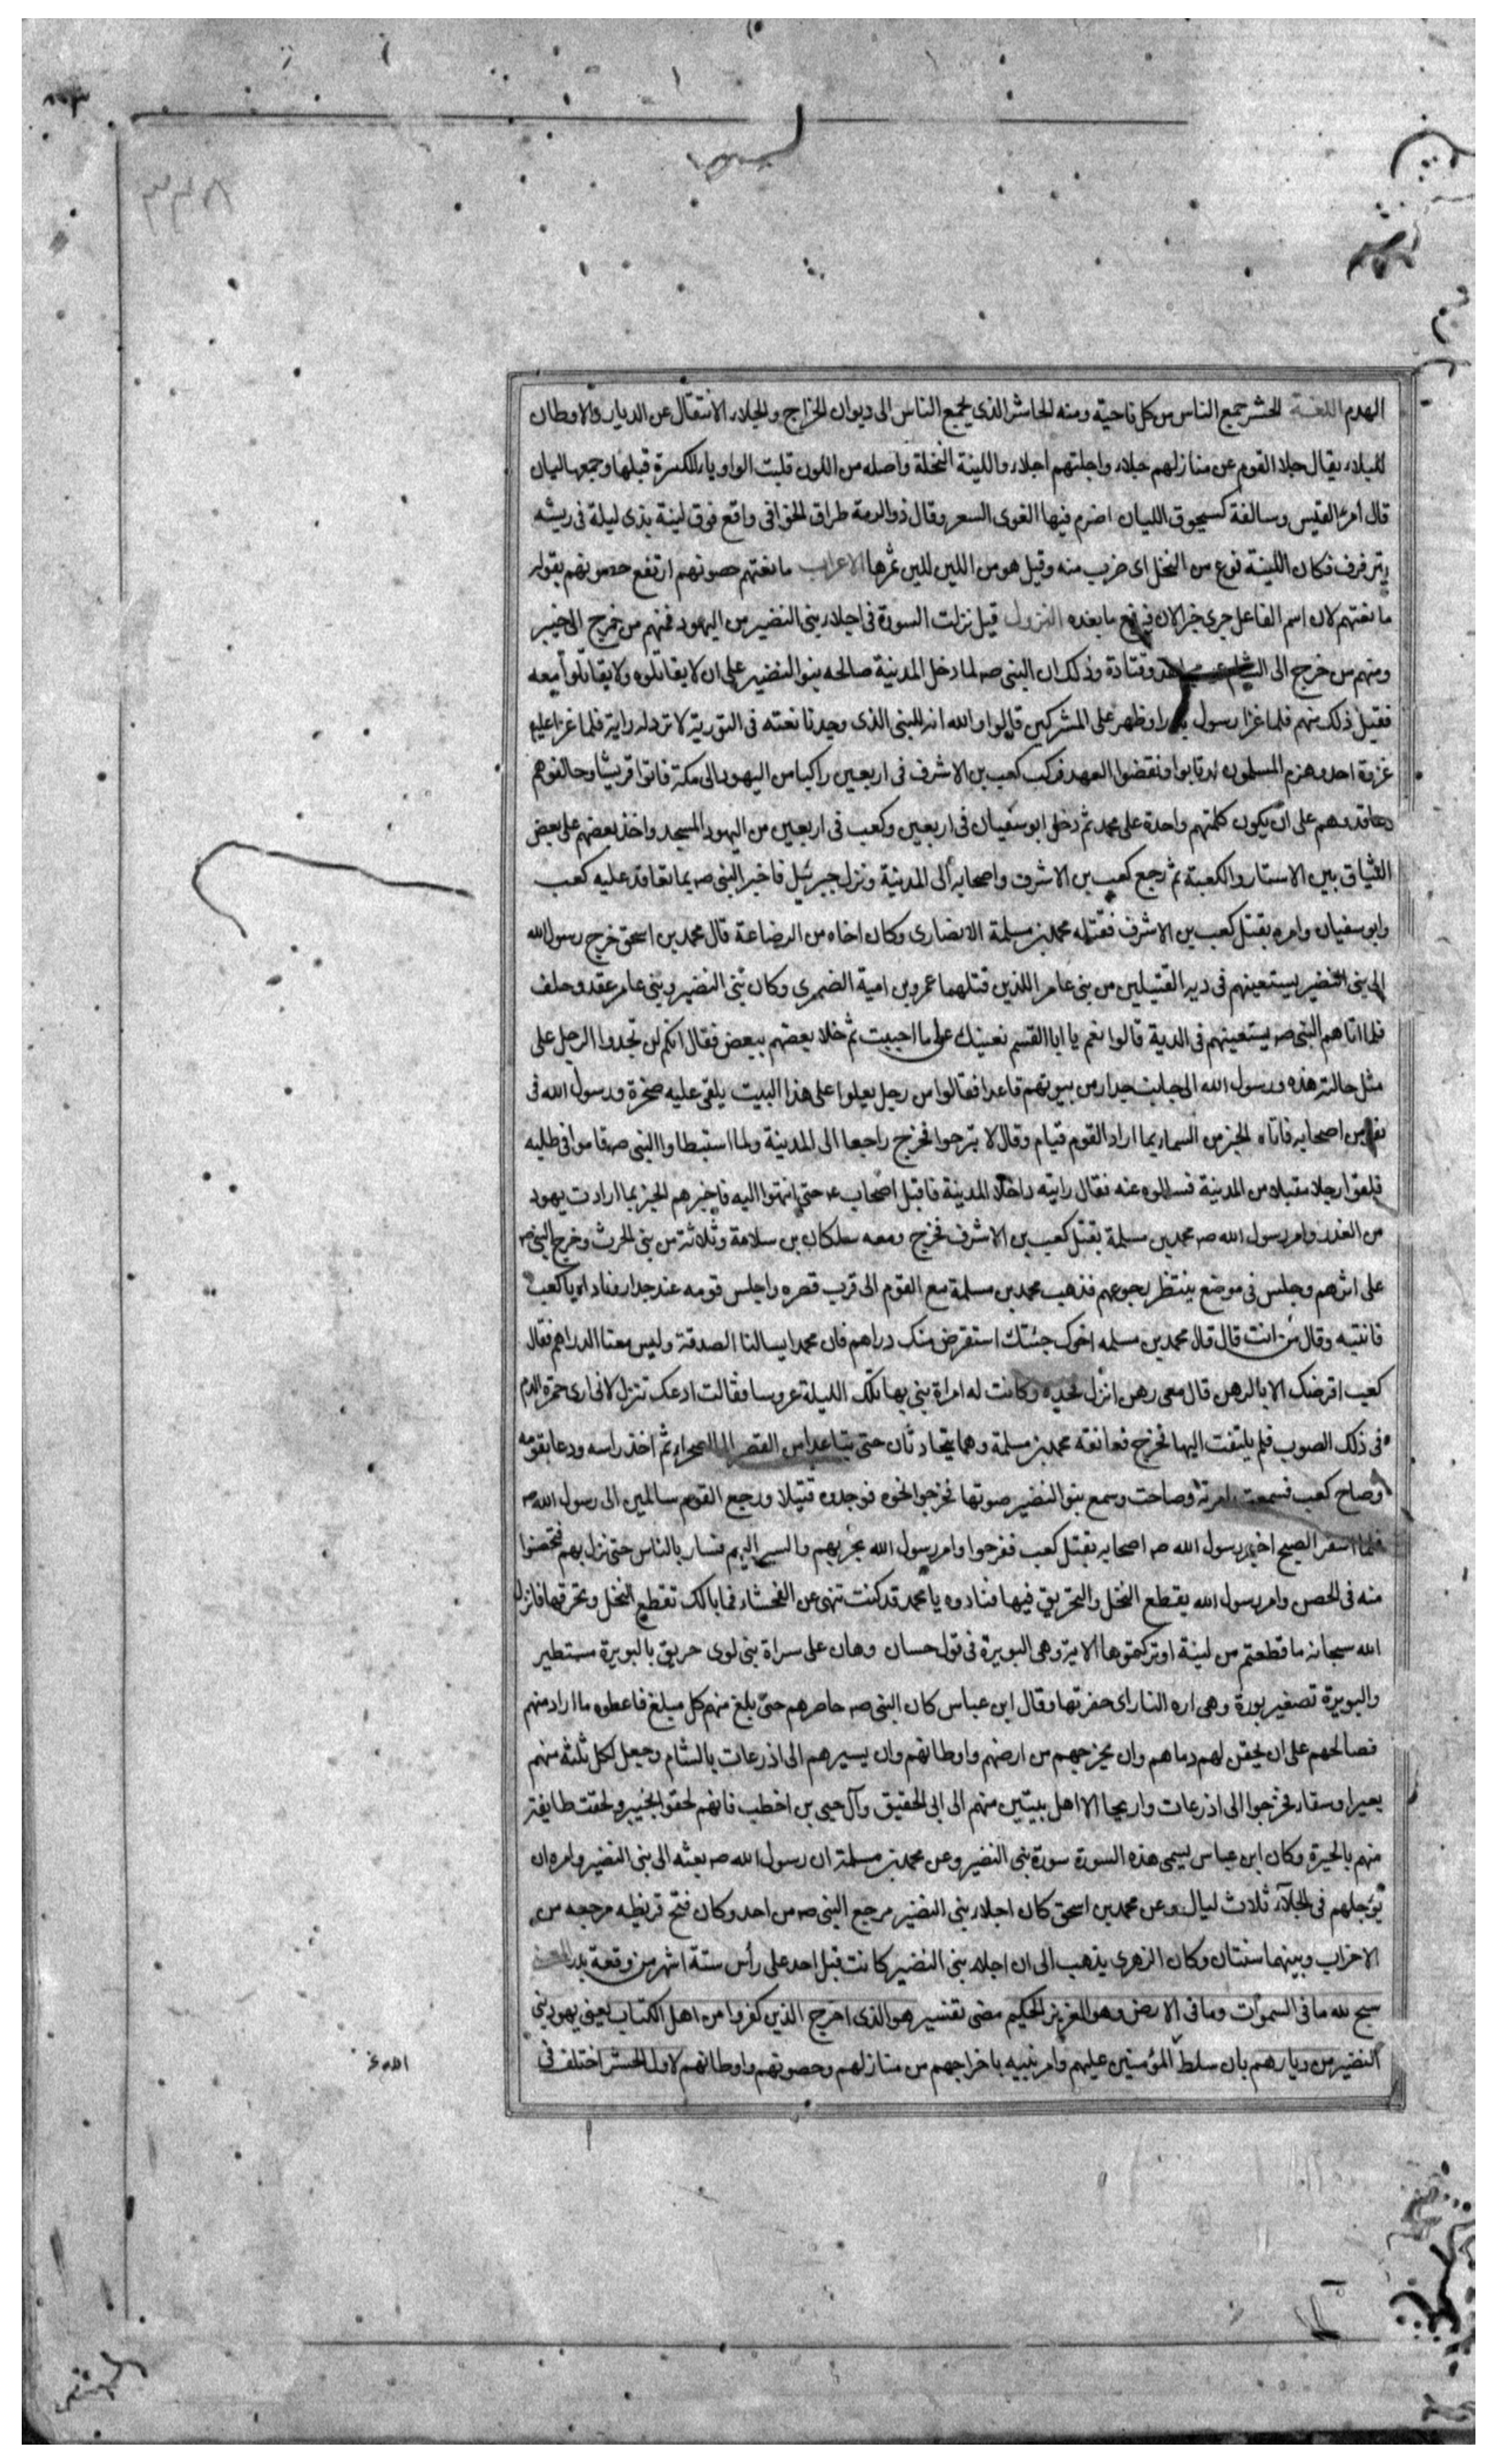 الهدم اللغة الحشر جمع الناس من كل ناحية ومنه الحاشر الذى يجمع الناس الى ديوان الخراج والجلاء الانتقال عن الديار والاوطان
للبلاء يقال جلا القوم عن منازلهم جلاء واجلتهم اجلاء واللينة النخلة واصله من اللون قلبت الواو ياء للكسرة قبلها وجمعها ليان
قال امرء القيس وسالفة كسحوق الليان اضرم فيها الغوى السعر وقال ذو الرمة طراق الخوافى واقع فوق لينة بذى ليلة فى ريشه
يترفرف فكان اللينة نوع من النخل اى ضرب منه وقيل هو من اللين للين ثمرها الاعراب مانعتهم حصونهم ارتفع حصونهم بقوله
مانعتهم لان اسم الفاعل جرى خبرا لان فيرفع ما بعده النزول قيل نزلت السورة فى اجلاء بنى النضير من اليهود فمنهم من خرج الى خيبر
ومنهم من خرج الى الشام عن مجاهد وقتادة وذلك ان النبى صه لما دخل المدينة صالحه بنو النضير على ان لا يقاتلوه ولا يقاتلوا معه
فقبل ذلك منهم فلما غزا رسول بدرا وظهر على المشركين قالوا والله انه للنبى الذى وجدنا نعته فى التورية لا ترد له راية فلما غزا عليه
غزوة احد وهزم المسلمون ارتابوا ونقضوا العهد فركب كعب بن الاشرف فى اربعين راكبا من اليهود الى مكة فاتوا قريشا وحالفوهم
وعاقدوهم على ان يكون كلمتهم واحدة على محمد ثم دخل ابو سفيان فى اربعين وكعب فى اربعين من اليهود المسجد واخذ بعضهم على بعض
الميثاق بين الاستار والكعبة ثم رجع كعب بن الاشرف واصحابه الى المدينة ونزل جبرئيل فاخبر النبى صه بما تعاقد عليه كعب
وابو سفيان وامره بقتل كعب بن الاشرف فقتله محمد بن مسلمة الانصارى وكان اخاه من الرضاعة قال محمد بن اسحق خرج رسول الله
الى بنى النضير يستعينهم فى دية القتيلين من بنى عامر اللذين قتلهما عمرو بن امية الضمرى وكان بنى النضير وبنى عامر عقد وحلف
فلما اتاهم النبى صه يستعينهم فى الدية قالوا نعم يا ابا القسم نعينك على ما احببت ثم خلا بعضهم ببعض فقال انكم لن تجدوا الرجل على
مثل حالته هذه ورسول الله الى جانب جدار من بيوتهم قاعدا فقالوا من رجل يعلوا على هذا البيت يلقى عليه صخرة ورسول الله فى
نفر من اصحابه فاتاه الخبر من السماء بما اراد القوم فقام وقال لا تبرحوا فخرج راجعا الى المدينة ولما استبطاوا النبى صه قاموا فى طلبه
فلقوا رجلا مقبلا من المدينة فسالوه عنه فقال رايته داخلا المدينة فاقبل اصحاب عه حتى انتهوا اليه فاخبرهم الخبر بما ارادت يهود
من الغدر وامر رسول الله صه محمد بن مسلمة بقتل كعب بن الاشرف فخرج ومعه سلكان بن سلامة وثلاثة من بنى الحرث وخرج النبى صه
على اثرهم وجلس فى موضع ينتظر رجوعهم فذهب محمد بن مسلمة مع القوم الى قرب قصره واجلس قومه عند جدار فناداه يا كعب
فانتبه وقال من انت قال قال محمد بن مسلمه اخوك جئتك استقرض منك دراهم فان محمدا يسالنا الصدقة وليس معنا الدراهم فقال
كعب اقرضك الا بالرهن قال معى رهن انزل فخذه وكانت له امراة بنى بها تلك الليلة عروسا فقالت ادعك تنزل لانى ارى حمرة الدم
فى ذلك الصوب فلم يلتفت اليها فخرج فعانقه محمد بن مسلمة وهما يتحادثان حتى تباعدا من القصر الى الصحراء ثم اخذ راسه ودعا بقومه
وصاح كعب فسمعت امرته وصاحت وسمع بنو النضير صوتها فخرجوا نحوه فوجدوه قتيلا ورجع القوم سالمين الى رسول الله صه
فلما اسفر الصبح اخبر رسول الله صه اصحابه بقتل كعب ففرحوا وامر رسول الله بحربهم والسير اليهم فسار بالناس حتى نزل بهم فتحصنوا
منه فى الحصن وامر رسول الله بقطع النخل والتحريق فيها فنادوه يا محمد قد كنت تنهى عن الفحشاء فما بالك تقطع النخل وتحرقها فانزل
الله سبحانه ما قطعتم من لينة او تركتموها الاية وهى البويرة فى قول حسان وهان على سراة بنى لوى حريق بالبويرة مستطير
والبويرة تصغير بورة وهى اره النار اى حفرتها وقال ابن عباس كان النبى صه حاصرهم حتى بلغ منهم كل مبلغ فاعطوه ما اراد منهم
فصالحهم على ان يحقن لهم دماهم وان يخرجهم من ارضهم واوطانهم وان يسيرهم الى اذرعات بالشام وجعل لكل ثلثة منهم
بعيرا وسقاء فخرجوا الى اذرعات واريحا الا اهل بيتين منهم الى ابى الحقيق وآل حيى بن اخطب فانهم لحقوا بخيبر ولحقت طايفة
منهم بالحيرة وكان ابن عباس يسمى هذه السورة سورة بنى النضير وعن محمد بن مسلمة ان رسول الله صه بعثه الى بنى النضير وامره ان
يؤجلهم فى الجلآء ثلاث ليال وعن محمد بن اسحق كان اجلاء بنى النضير مرجع النبى صه من احد وكان فتح قريظه مرجعه من
الاحزاب وبينهما سنتان وكان الزهرى يذهب الى ان اجلاء بنى النضير كانت قبل احد على رأس ستة اشهر من وقعة بدر المعنى
سبح لله ما فى السموات وما فى الارض وهو العزيز الحكيم مضى تفسير هو الذى اخرج الذين كفروا من اهل الكتاب يعنى يهود بنى
النضير من ديارهم بان سلط المؤمنين عليهم وامر نبيه باخراجهم من منازلهم وحصونهم واوطانهم لاول الحشر اختلف فى